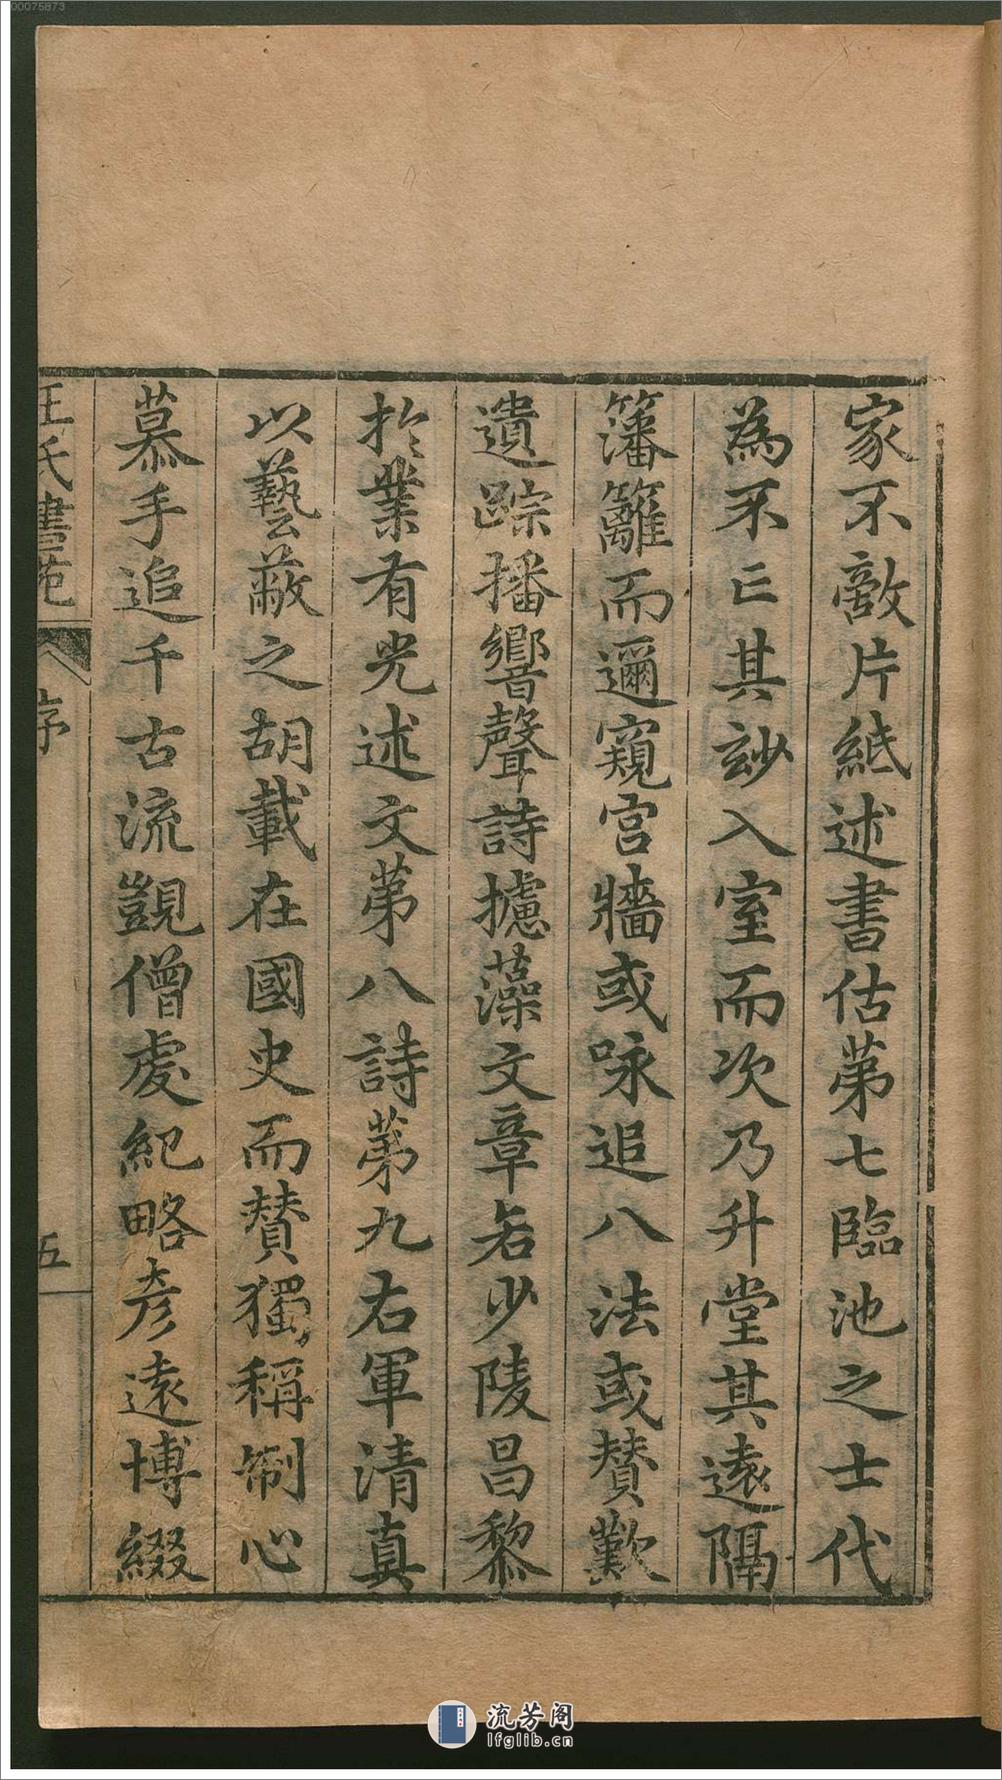 家不敵片紙述書估苐七臨池之士代
為不亡其玅入室而次乃升堂其遠隔
籓籬而邇窺宮牆或咏追八法或賛歎
遺踪播響聲詩攄藻文章若少陵昌黎
於業有光述文苐八詩苐九右軍清真
以藝蔽之胡載在國史而賛獨稱制心
慕手追千古流覬僧虔紀略彥遠博綴
王氏書苑
序
五
00075873
流芳阁
lfglib.cn